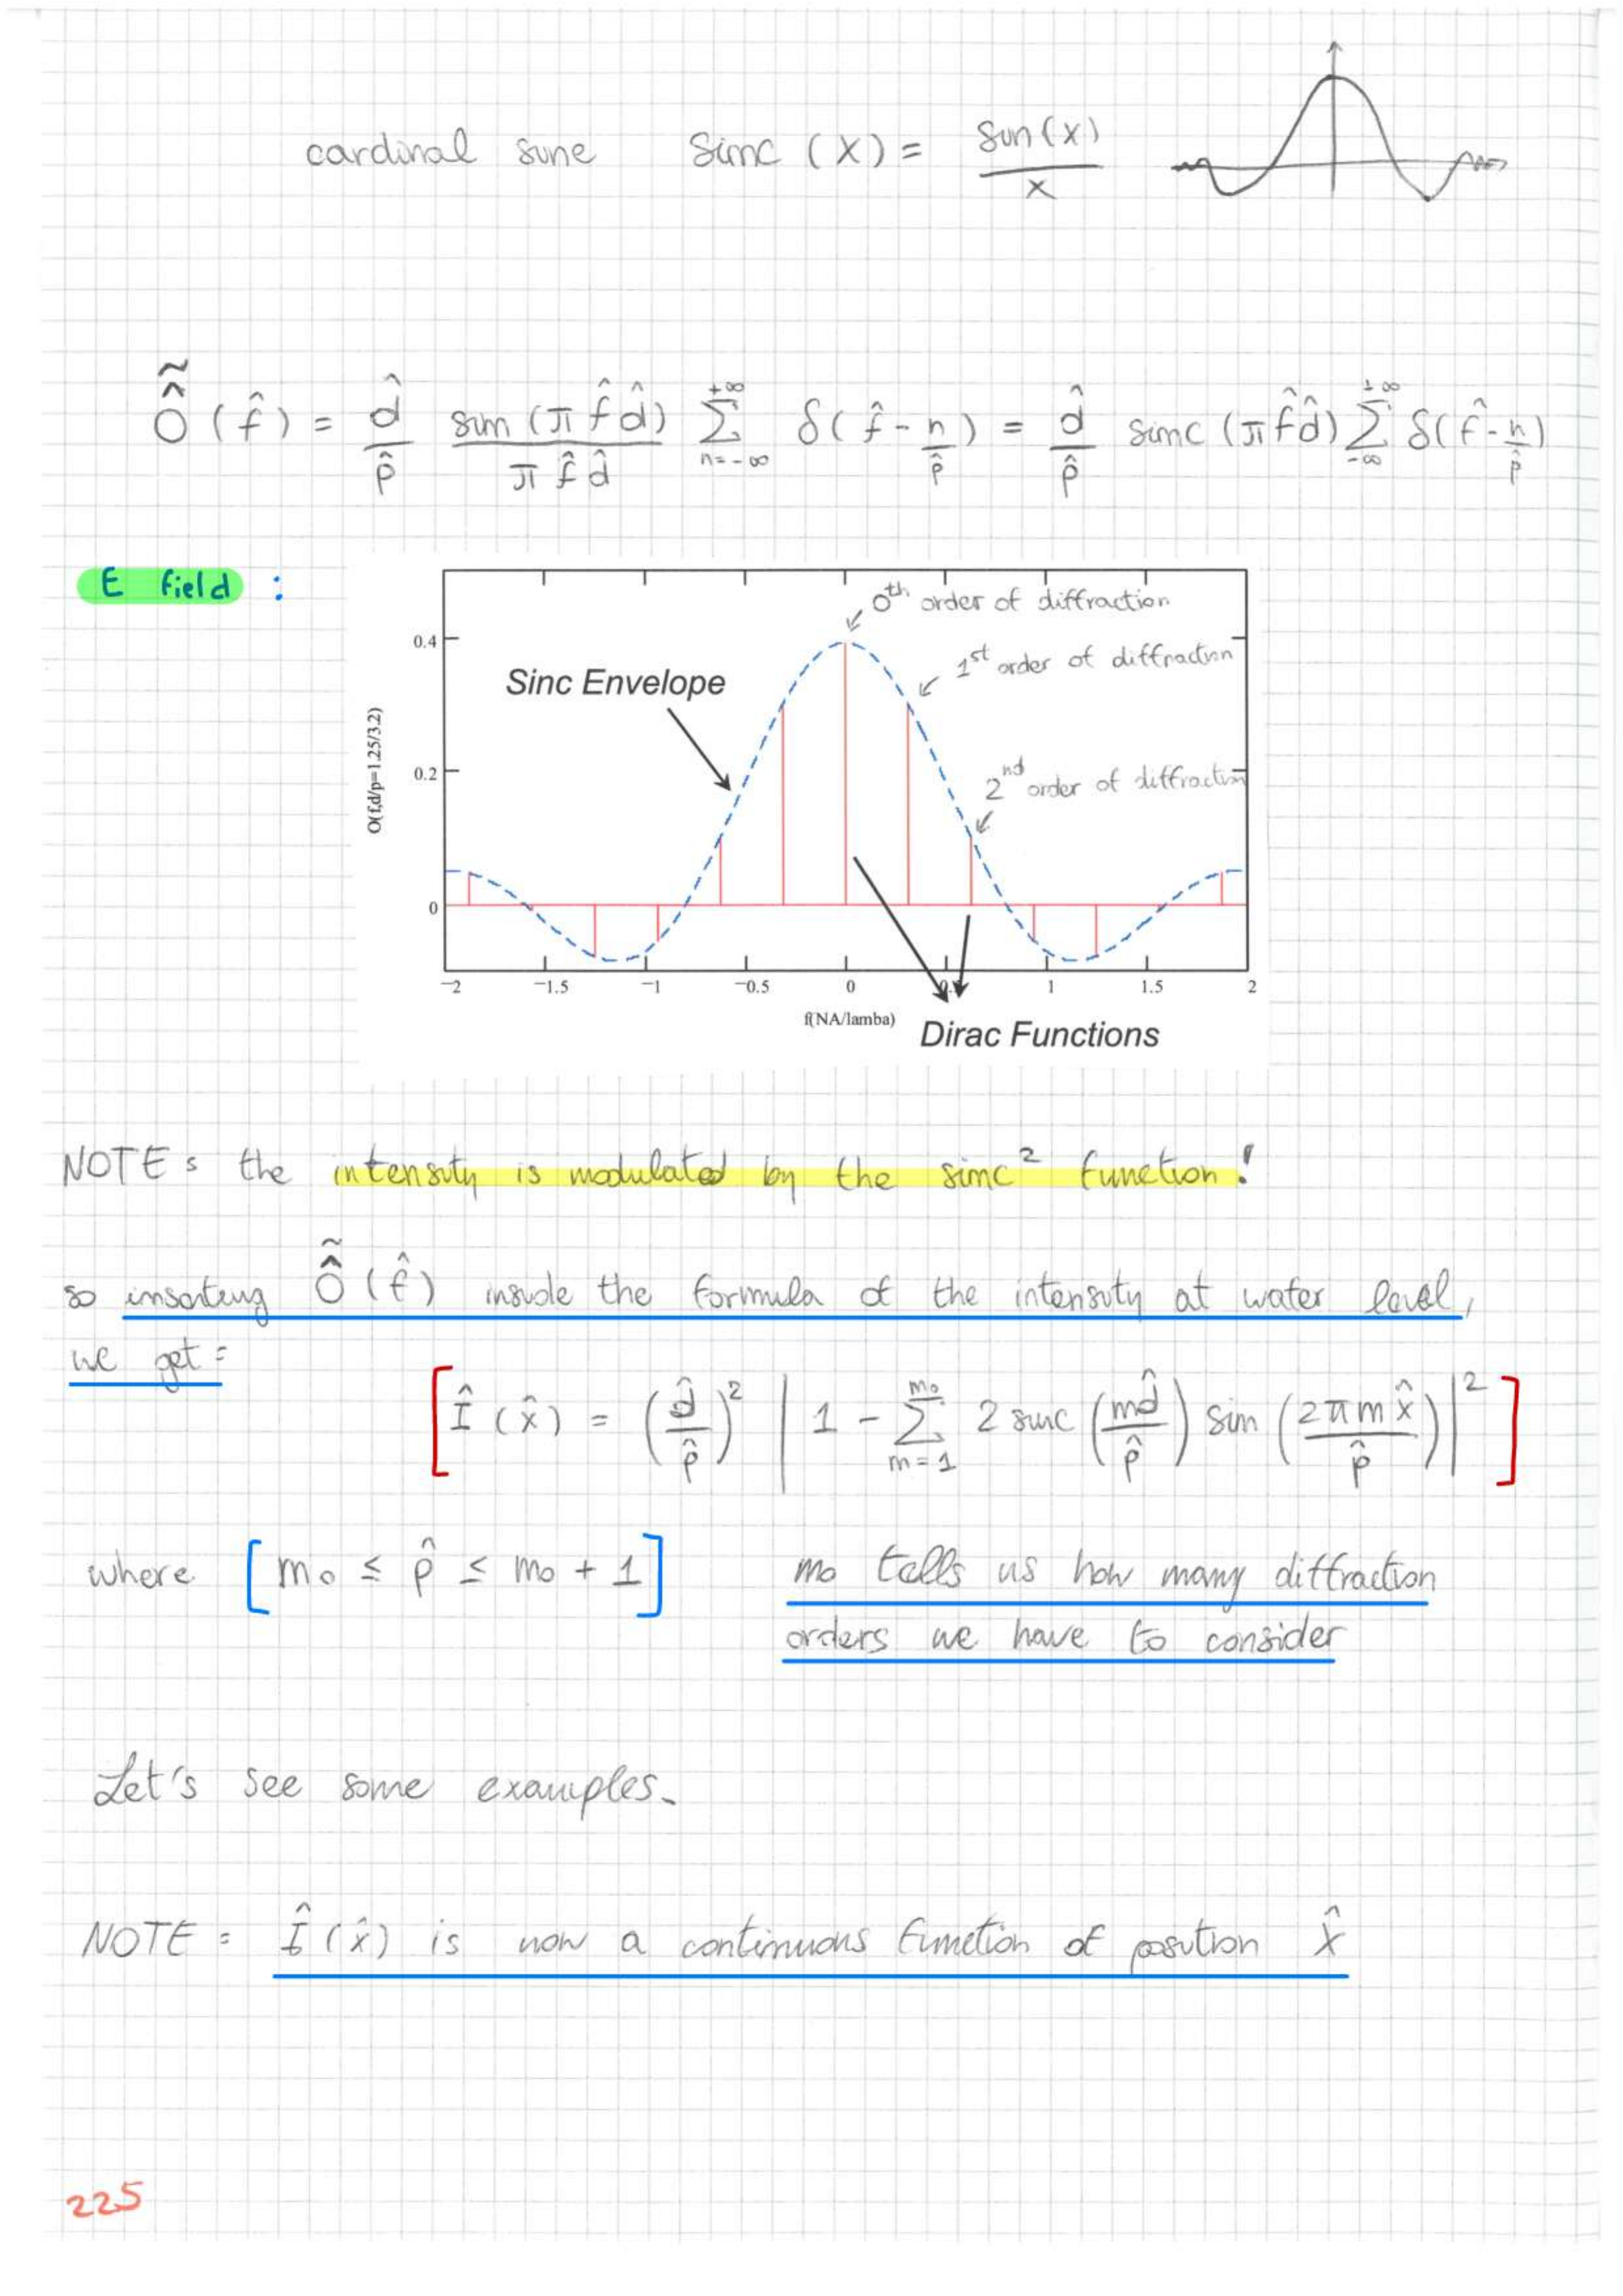 cardinal sine sinc (x) = sin(x) / x
Õ̂ (f̂) = d̂/p̂ sin(π f̂ d̂)/(π f̂ d̂) Σ_{n=-∞}^{+∞} δ(f̂ - n/p̂) = d̂/p̂ sinc(π f̂ d̂) Σ_{-∞}^{+∞} δ(f̂ - n/p̂)
E field :
0th order of diffraction
1st order of diffraction
Sinc Envelope
2nd order of diffraction
O(f,d/p=1.25/3.2)
0.4
0.2
0
−2 −1.5 −1 −0.5 0 1 1.5 2
f(NA/lamba)
Dirac Functions
NOTE: the intensity is modulated by the sinc² function!
so inserting Õ̂ (f̂) inside the formula of the intensity at water level,
we get:
[Î (x̂) = (d̂/p̂)² | 1 - Σ_{m=1}^{m₀} 2 sinc (md̂/p̂) sin (2πmx̂/p̂)|²]
where [m₀ ≤ p̂ ≤ m₀ + 1] m₀ tells us how many diffraction
orders we have to consider
Let's see some examples.
NOTE: Î(x̂) is now a continuous function of position x̂
225